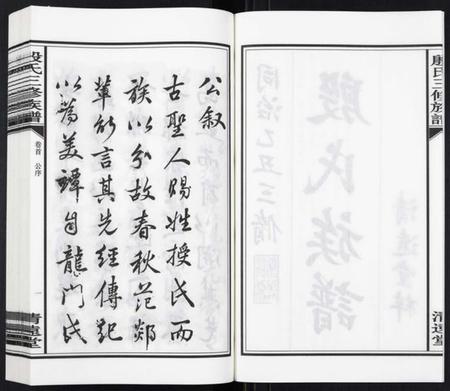 殷氏三修族譜
清遠堂
公叙
古聖人賜姓授氏而
族以分故春秋范郯
輩能言其先經傳記
以為美譚自龍門氏
殷氏三修族譜
卷首 公序
一
清遠堂
殷氏族譜
同治乙丑三脩